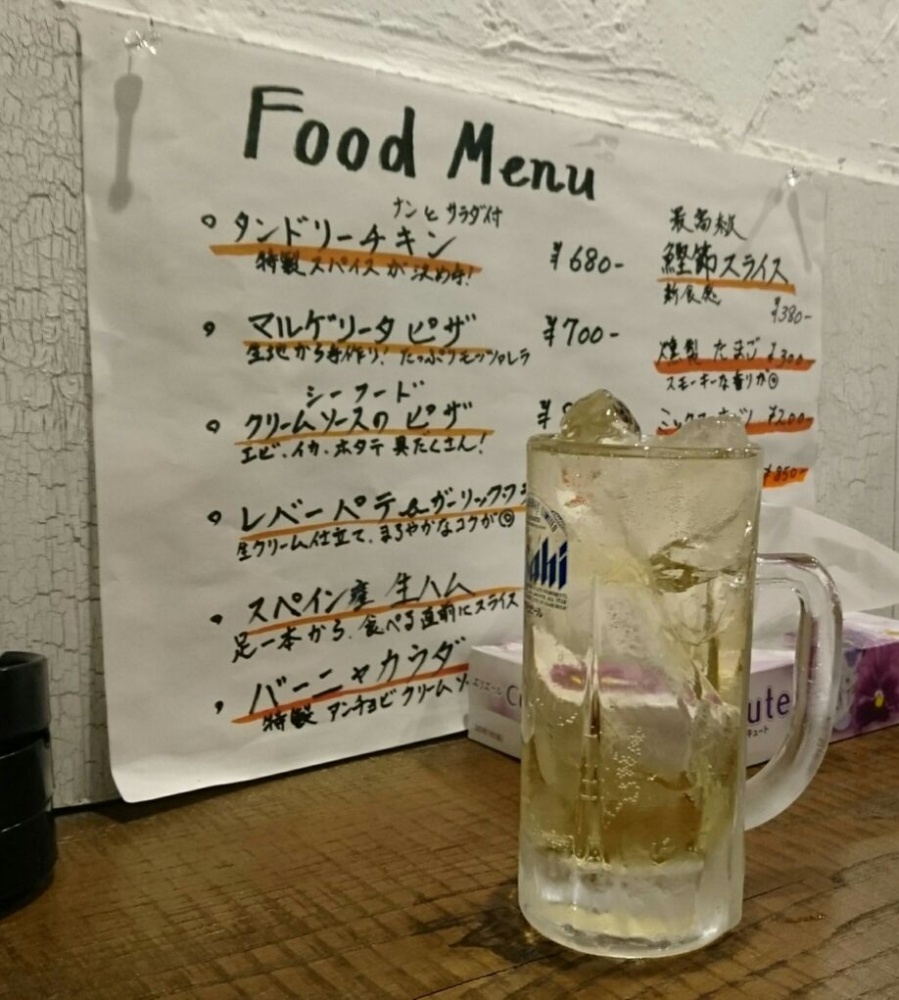 Food Menu
ナンとサラダ付
タンドリーチキン ¥680-
特製スパイスが決め手!
マルゲリータ ピザ ¥700-
生地から手作り! たっぷりモッツァレラ
シーフード
クリームソースの ピザ ¥
エビ、イカ、ホタテ 具だくさん!
レバーパテ&ガーリック
生クリーム仕立て、まろやかなコクが◎
スペイン産 生ハム
足一本から、食べる直前にスライス
バーニャカウダ
特製 アンチョビ クリームソ
最高級
鰹節スライス
新食感
¥380-
燻製 たまご ¥300-
スモーキーな香りが◎
ミックス ¥200-
¥850-
ahi
エリエール
ute
キュート